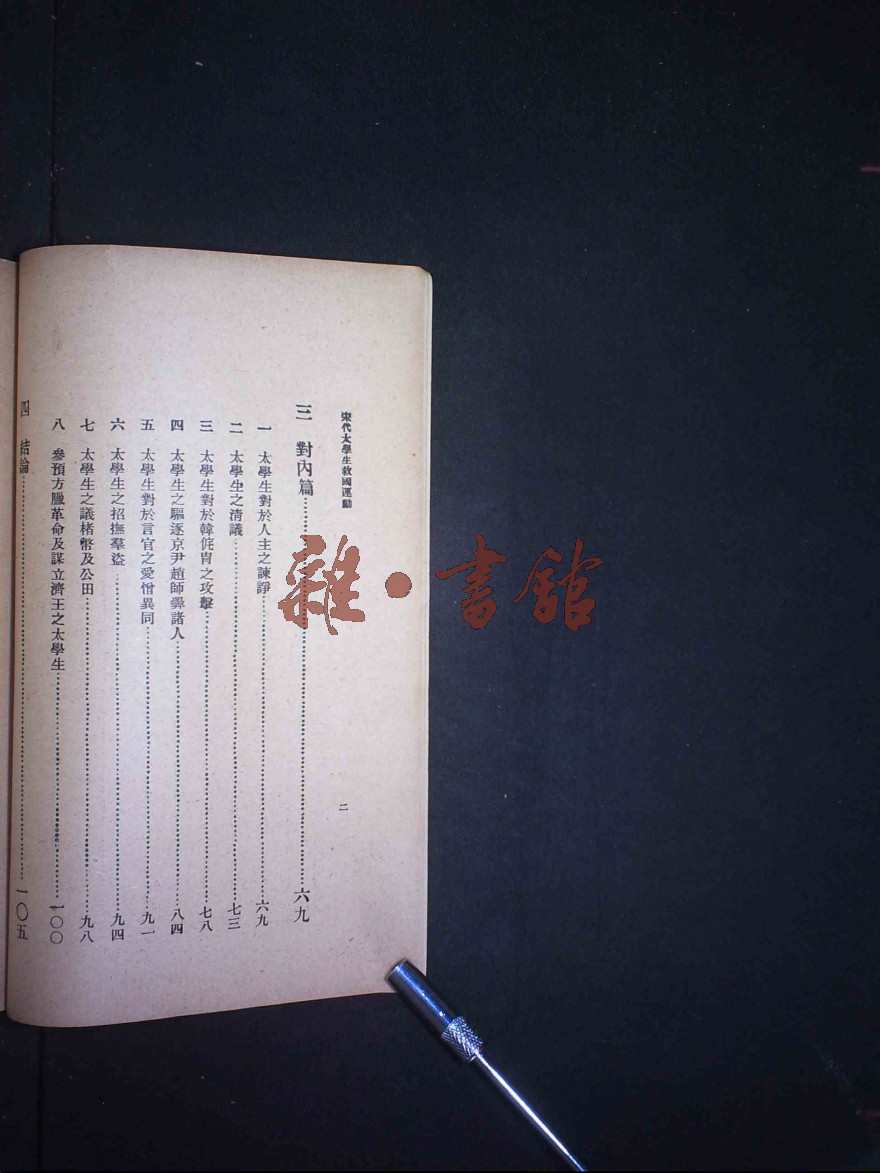 宋代太學生救國運動
二
三　對內篇……六九
一　太學生對於人主之諫諍……六九
二　太學生之清議……七三
三　太學生對於韓侂冑之攻擊……七八
四　太學生之驅逐京尹趙師𢍰諸人……八四
五　太學生對於言官之愛憎異同……九一
六　太學生之招撫羣盜……九四
七　太學生之議楮幣及公田……九八
八　參預方臘革命及謀立濟王之太學生……一〇〇
四　結論……一〇五
雜·書館